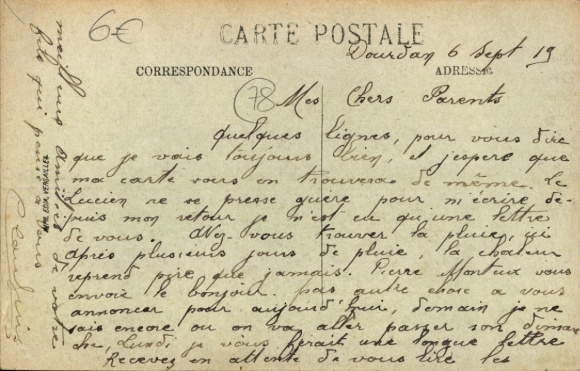 6€
CARTE POSTALE
Dourdan 6 Sept 19
CORRESPONDANCE
ADRESSE
78
Mes Chers Parents
quelques lignes, pour vous dire
que je vais toujours bien, et j'espère que
ma carte vous en trouvera de même. Le
Lucien ne se presse guère pour m'écrire de-
puis mon retour je n'est eu qu'une lettre
de vous. Avez-vous trouver la pluie, ici
Après plusieurs jours de pluie, la chaleur
reprend pire que jamais. Pierre vous
envoie le bonjour. pas autre chose a vous
annoncer pour aujourd'hui, demain je ne
sais encore ou on va aller passer son diman
che, Lundi je vous ferait une longue lettre
Recevez en attente de vous lire les
meilleurs amitiés de votre
fils qui pense a vous
EDIA, VERSAILLES